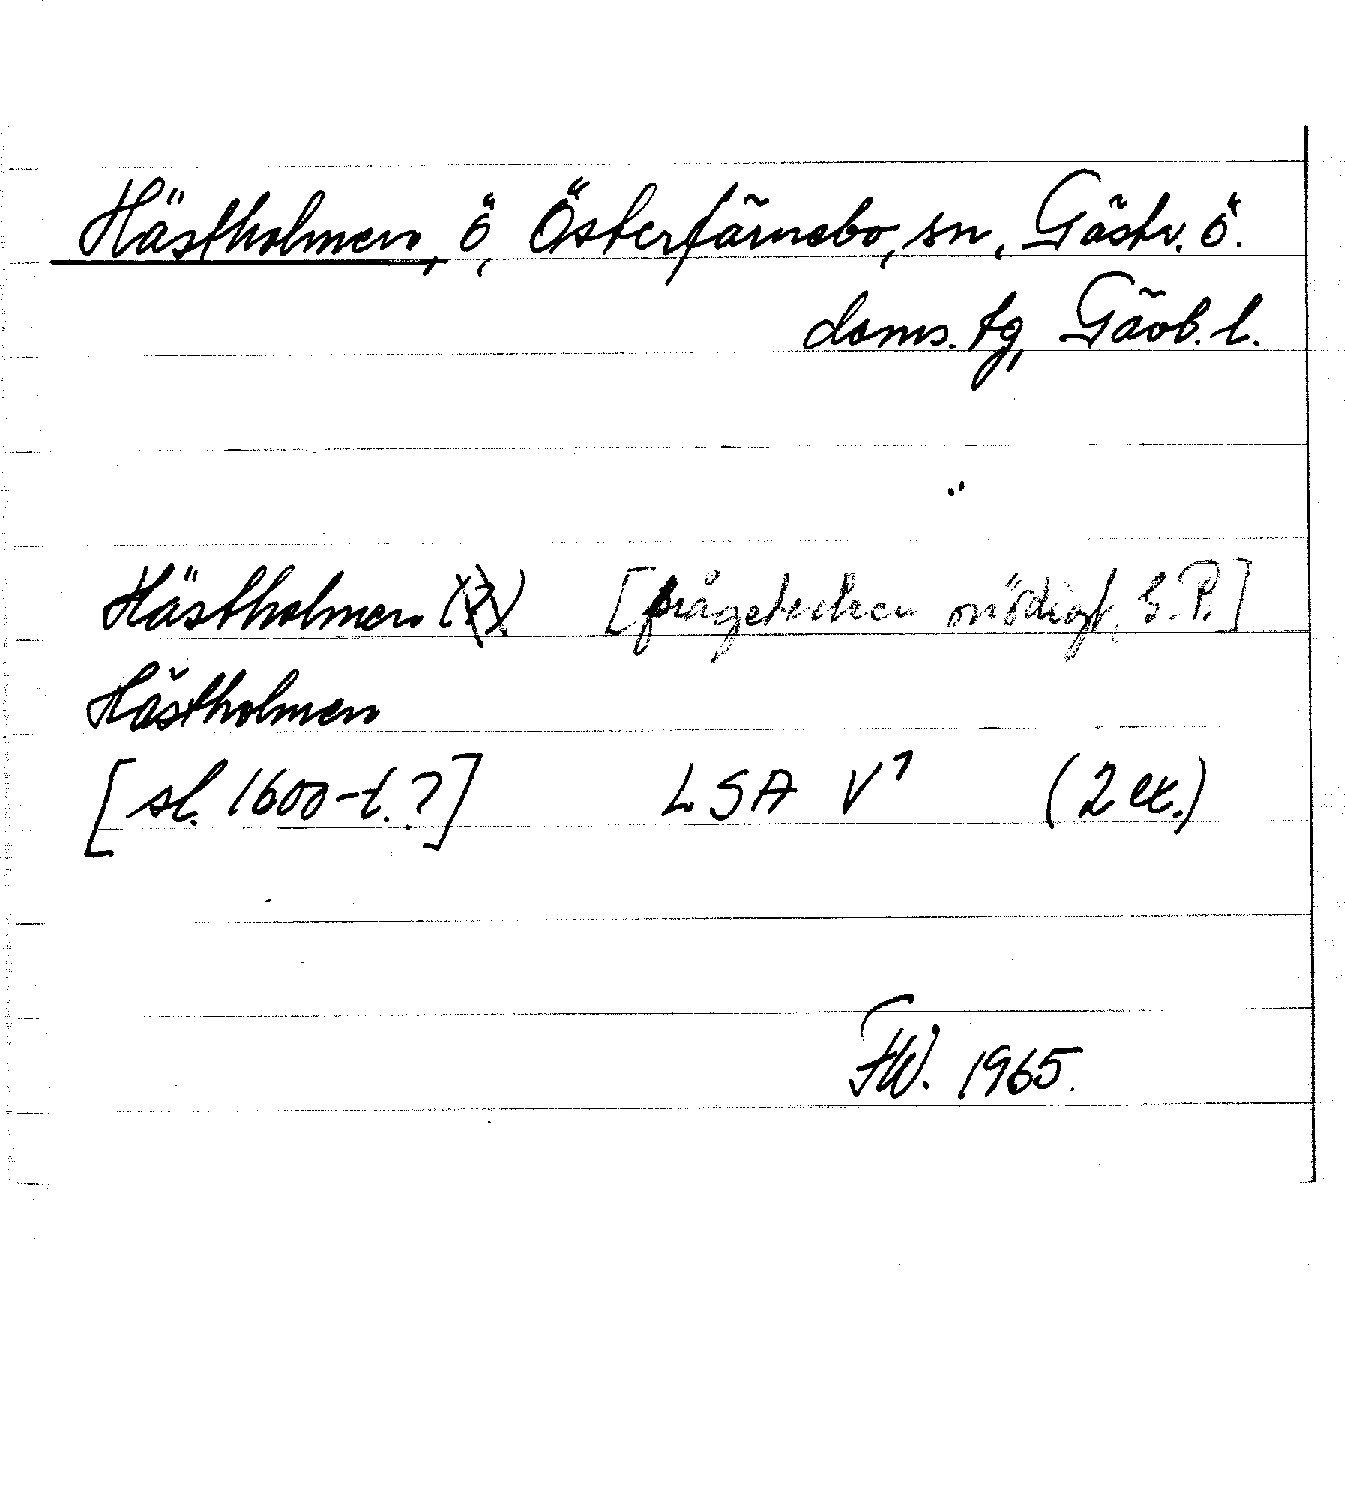 Hästholmen, ö, Österfärnebo, sn, Gästr. ö.
doms. tg, Gävb. l.
Hästholmen (?) [frågetecken onödigt, G.P.]
Hästholmen
[sl. 1600-t.?] LSA V1 (2 ex.)
FW. 1965.